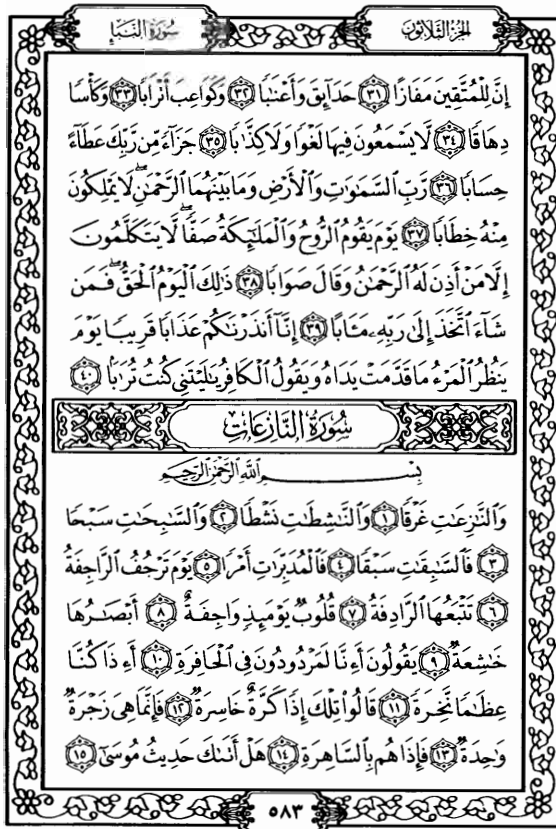 سُورَةُ النَّبَإِ
الجُزْءُ الثَّلَاثُونَ
إِنَّ لِلْمُتَّقِينَ مَفَازًا ٣١ حَدَآئِقَ وَأَعْنَٰبًا ٣٢ وَكَوَاعِبَ أَتْرَابًا ٣٣ وَكَأْسًا
دِهَاقًا ٣٤ لَّا يَسْمَعُونَ فِيهَا لَغْوًا وَلَا كِذَّٰبًا ٣٥ جَزَآءً مِّن رَّبِّكَ عَطَآءً
حِسَابًا ٣٦ رَّبِّ ٱلسَّمَٰوَٰتِ وَٱلْأَرْضِ وَمَا بَيْنَهُمَا ٱلرَّحْمَٰنِۖ لَا يَمْلِكُونَ
مِنْهُ خِطَابًا ٣٧ يَوْمَ يَقُومُ ٱلرُّوحُ وَٱلْمَلَٰٓئِكَةُ صَفًّاۖ لَّا يَتَكَلَّمُونَ
إِلَّا مَنْ أَذِنَ لَهُ ٱلرَّحْمَٰنُ وَقَالَ صَوَابًا ٣٨ ذَٰلِكَ ٱلْيَوْمُ ٱلْحَقُّۖ فَمَن
شَآءَ ٱتَّخَذَ إِلَىٰ رَبِّهِۦ مَـَٔابًا ٣٩ إِنَّآ أَنذَرْنَٰكُمْ عَذَابًا قَرِيبًا يَوْمَ
يَنظُرُ ٱلْمَرْءُ مَا قَدَّمَتْ يَدَاهُ وَيَقُولُ ٱلْكَافِرُ يَٰلَيْتَنِى كُنتُ تُرَٰبًۢا ٤٠
سُورَةُ النَّازِعَاتِ
بِسْمِ اللَّهِ الرَّحْمَٰنِ الرَّحِيمِ
وَٱلنَّٰزِعَٰتِ غَرْقًا ١ وَٱلنَّٰشِطَٰتِ نَشْطًا ٢ وَٱلسَّٰبِحَٰتِ سَبْحًا
٣ فَٱلسَّٰبِقَٰتِ سَبْقًا ٤ فَٱلْمُدَبِّرَٰتِ أَمْرًا ٥ يَوْمَ تَرْجُفُ ٱلرَّاجِفَةُ
٦ تَتْبَعُهَا ٱلرَّادِفَةُ ٧ قُلُوبٌ يَوْمَئِذٍ وَاجِفَةٌ ٨ أَبْصَٰرُهَا
خَٰشِعَةٌ ٩ يَقُولُونَ أَءِنَّا لَمَرْدُودُونَ فِى ٱلْحَافِرَةِ ١٠ أَءِذَا كُنَّا
عِظَٰمًا نَّخِرَةً ١١ قَالُوا۟ تِلْكَ إِذًا كَرَّةٌ خَاسِرَةٌ ١٢ فَإِنَّمَا هِىَ زَجْرَةٌ
وَٰحِدَةٌ ١٣ فَإِذَا هُم بِٱلسَّاهِرَةِ ١٤ هَلْ أَتَىٰكَ حَدِيثُ مُوسَىٰٓ ١٥
٥٨٣